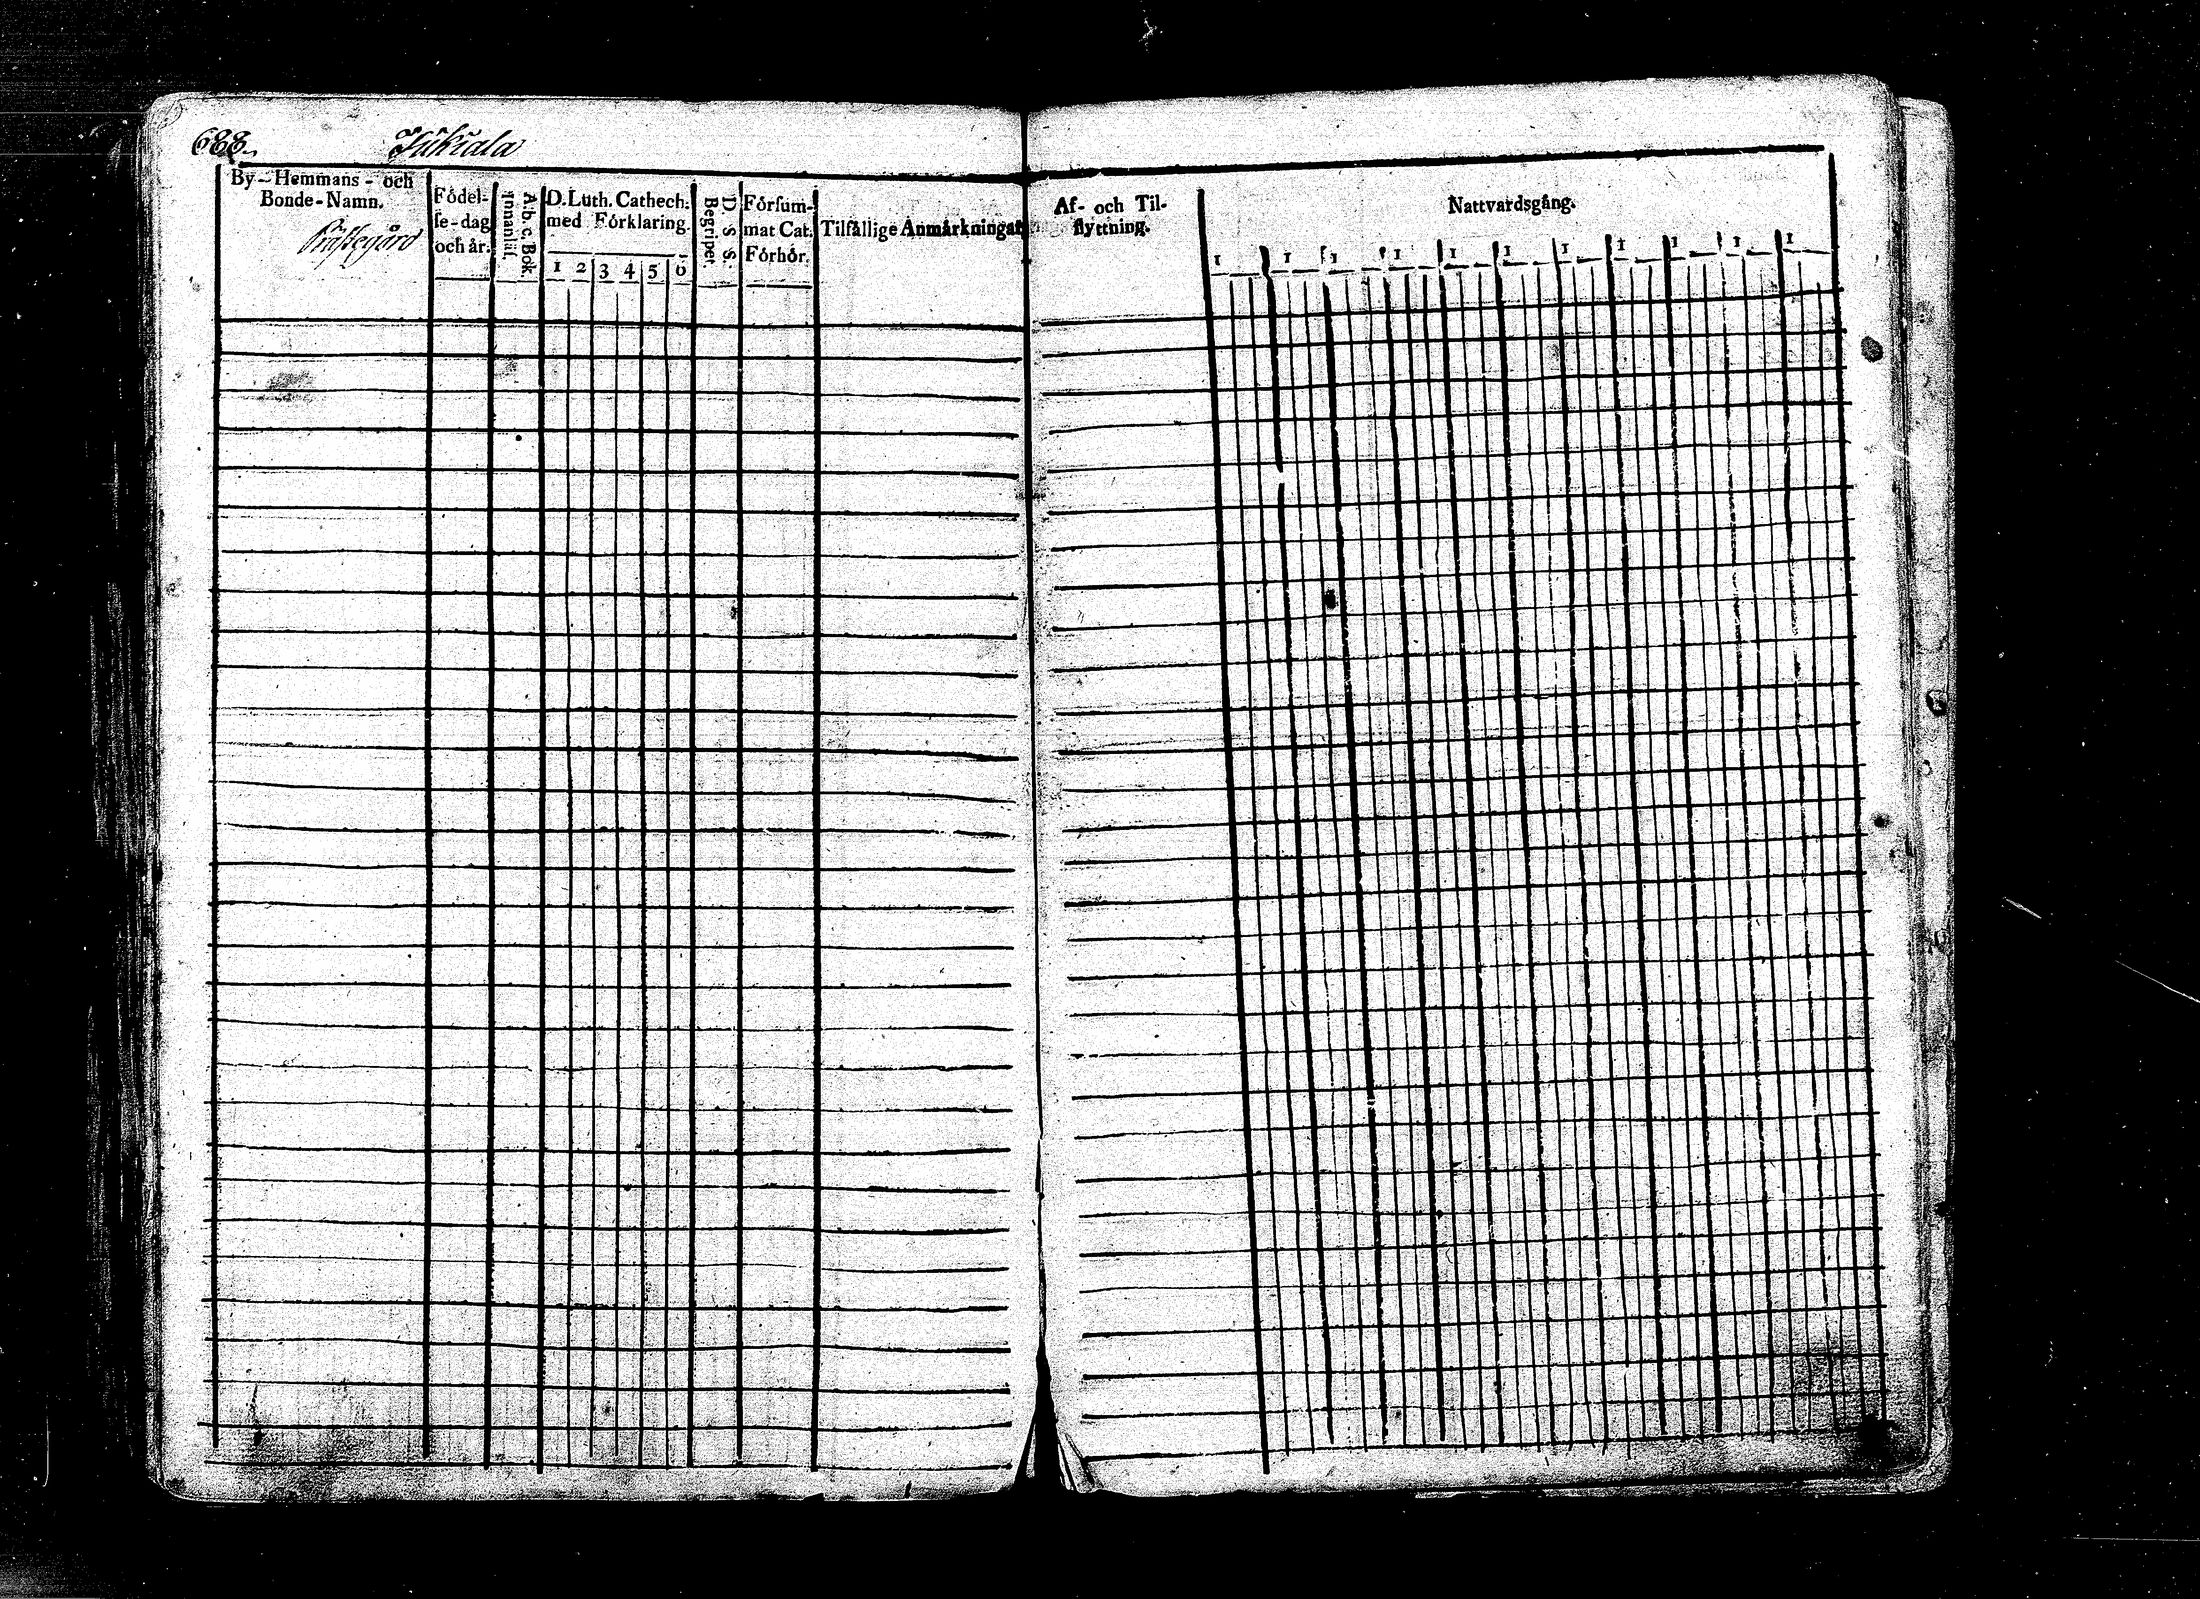 688.
Jukiala
By-Hemmans-och
Bonde-Namn.
Prästegård
Födel-
se-dag
och år.
A.b.c. Bok.
innantil.
D. Luth. Cathech.
med Förklaring.
1 2 3 4 5 6
D. S. S.
Begriper.
Försum-
mat Cat.
Förhör.
Tilfällige Anmärkningar
Af- och Til-
flyttning.
Nattvardsgång.
1 1 1 1 1 1 1 1 1 1 1